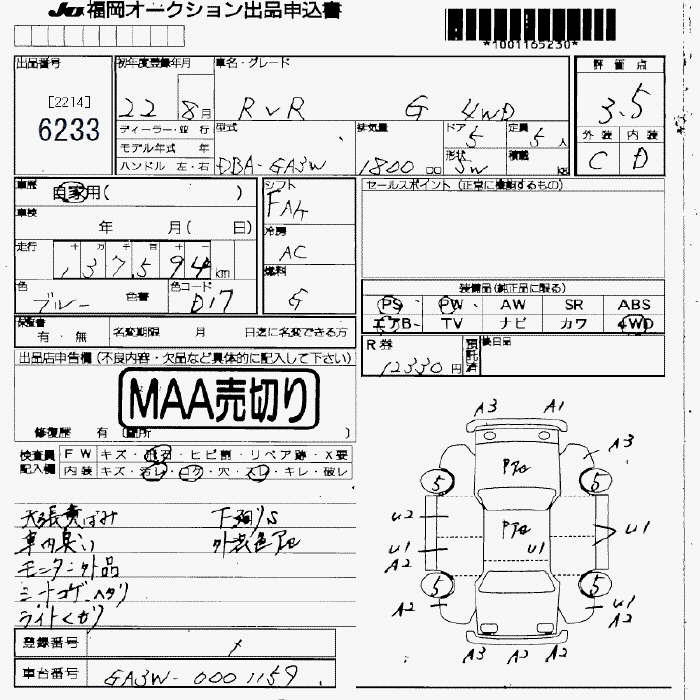 JU福岡オークション出品申込書
*1001165230*
出品番号
[2214]
6233
初年度登録年月
22 8月
車名・グレード
RVR G 4WD
評価点
3.5
外装 内装
C D
ディーラー・並行
モデル年式 年
ハンドル 左・右
型式
DBA-GA3W
排気量
1800 cc
ドア
5
形状
SW
定員
5人
積載
kg
車歴
自家用( )
車検
年 月( 日)
走行
十 万 千 百 十
137,594km
色
ブルー 色替
色コード
D17
シフト
FAT
冷房
AC
燃料
G
セールスポイント(正常に機能するもの)
装備品(純正品に限る)
PS PW AW SR ABS
エアB TV ナビ カワ 4WD
保証書
有・無
名変期限 月 日迄に名変できる方
R券
12330円
預託済
後日品
出品店申告欄(不良内容・欠品など具体的に記入して下さい)
MAA売切り
修復歴 有(箇所 )
検査員
記入欄
FW キズ・飛石・ヒビ割・リペア跡・X要
内装 キズ・汚レ・コゲ・穴・スレ・キレ・破レ
天張黄ばみ 下廻りS
車内臭い 外装色アセ
モニター外品
シートコゲ、ヘタリ
ライトくもり
登録番号
車台番号
GA3W-0001159
A3 A1
A3
Pアセ
5 5
U2
Pアセ
U1
U1
U1
A2
5 5
A2
U1
A2
A3 A2 A2